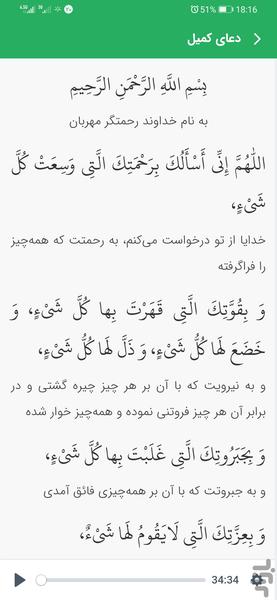 18:16
51%
دعای کمیل
بِسْمِ اللَّهِ الرَّحْمَنِ الرَّحِیمِ
به نام خداوند رحمتگر مهربان
اللَّهُمَّ إِنِّی أَسْأَلُکَ بِرَحْمَتِکَ الَّتِی وَسِعَتْ کُلَّ
شَیْءٍ،
خدایا از تو درخواست می‌کنم، به رحمتت که همه‌چیز
را فراگرفته
وَ بِقُوَّتِکَ الَّتِی قَهَرْتَ بِها کُلَّ شَیْءٍ، وَ
خَضَعَ لَها کُلُّ شَیْءٍ، وَ ذَلَّ لَها کُلُّ شَیْءٍ،
و به نیرویت که با آن بر هر چیز چیره گشتی و در
برابر آن هر چیز فروتنی نموده و همه‌چیز خوار شده
وَ بِجَبَرُوتِکَ الَّتِی غَلَبْتَ بِها کُلَّ شَیْءٍ،
و به جبروتت که با آن بر همه‌چیزی فائق آمدی
وَ بِعِزَّتِکَ الَّتِی لَایَقُومُ لَها شَیْءٌ،
34:34